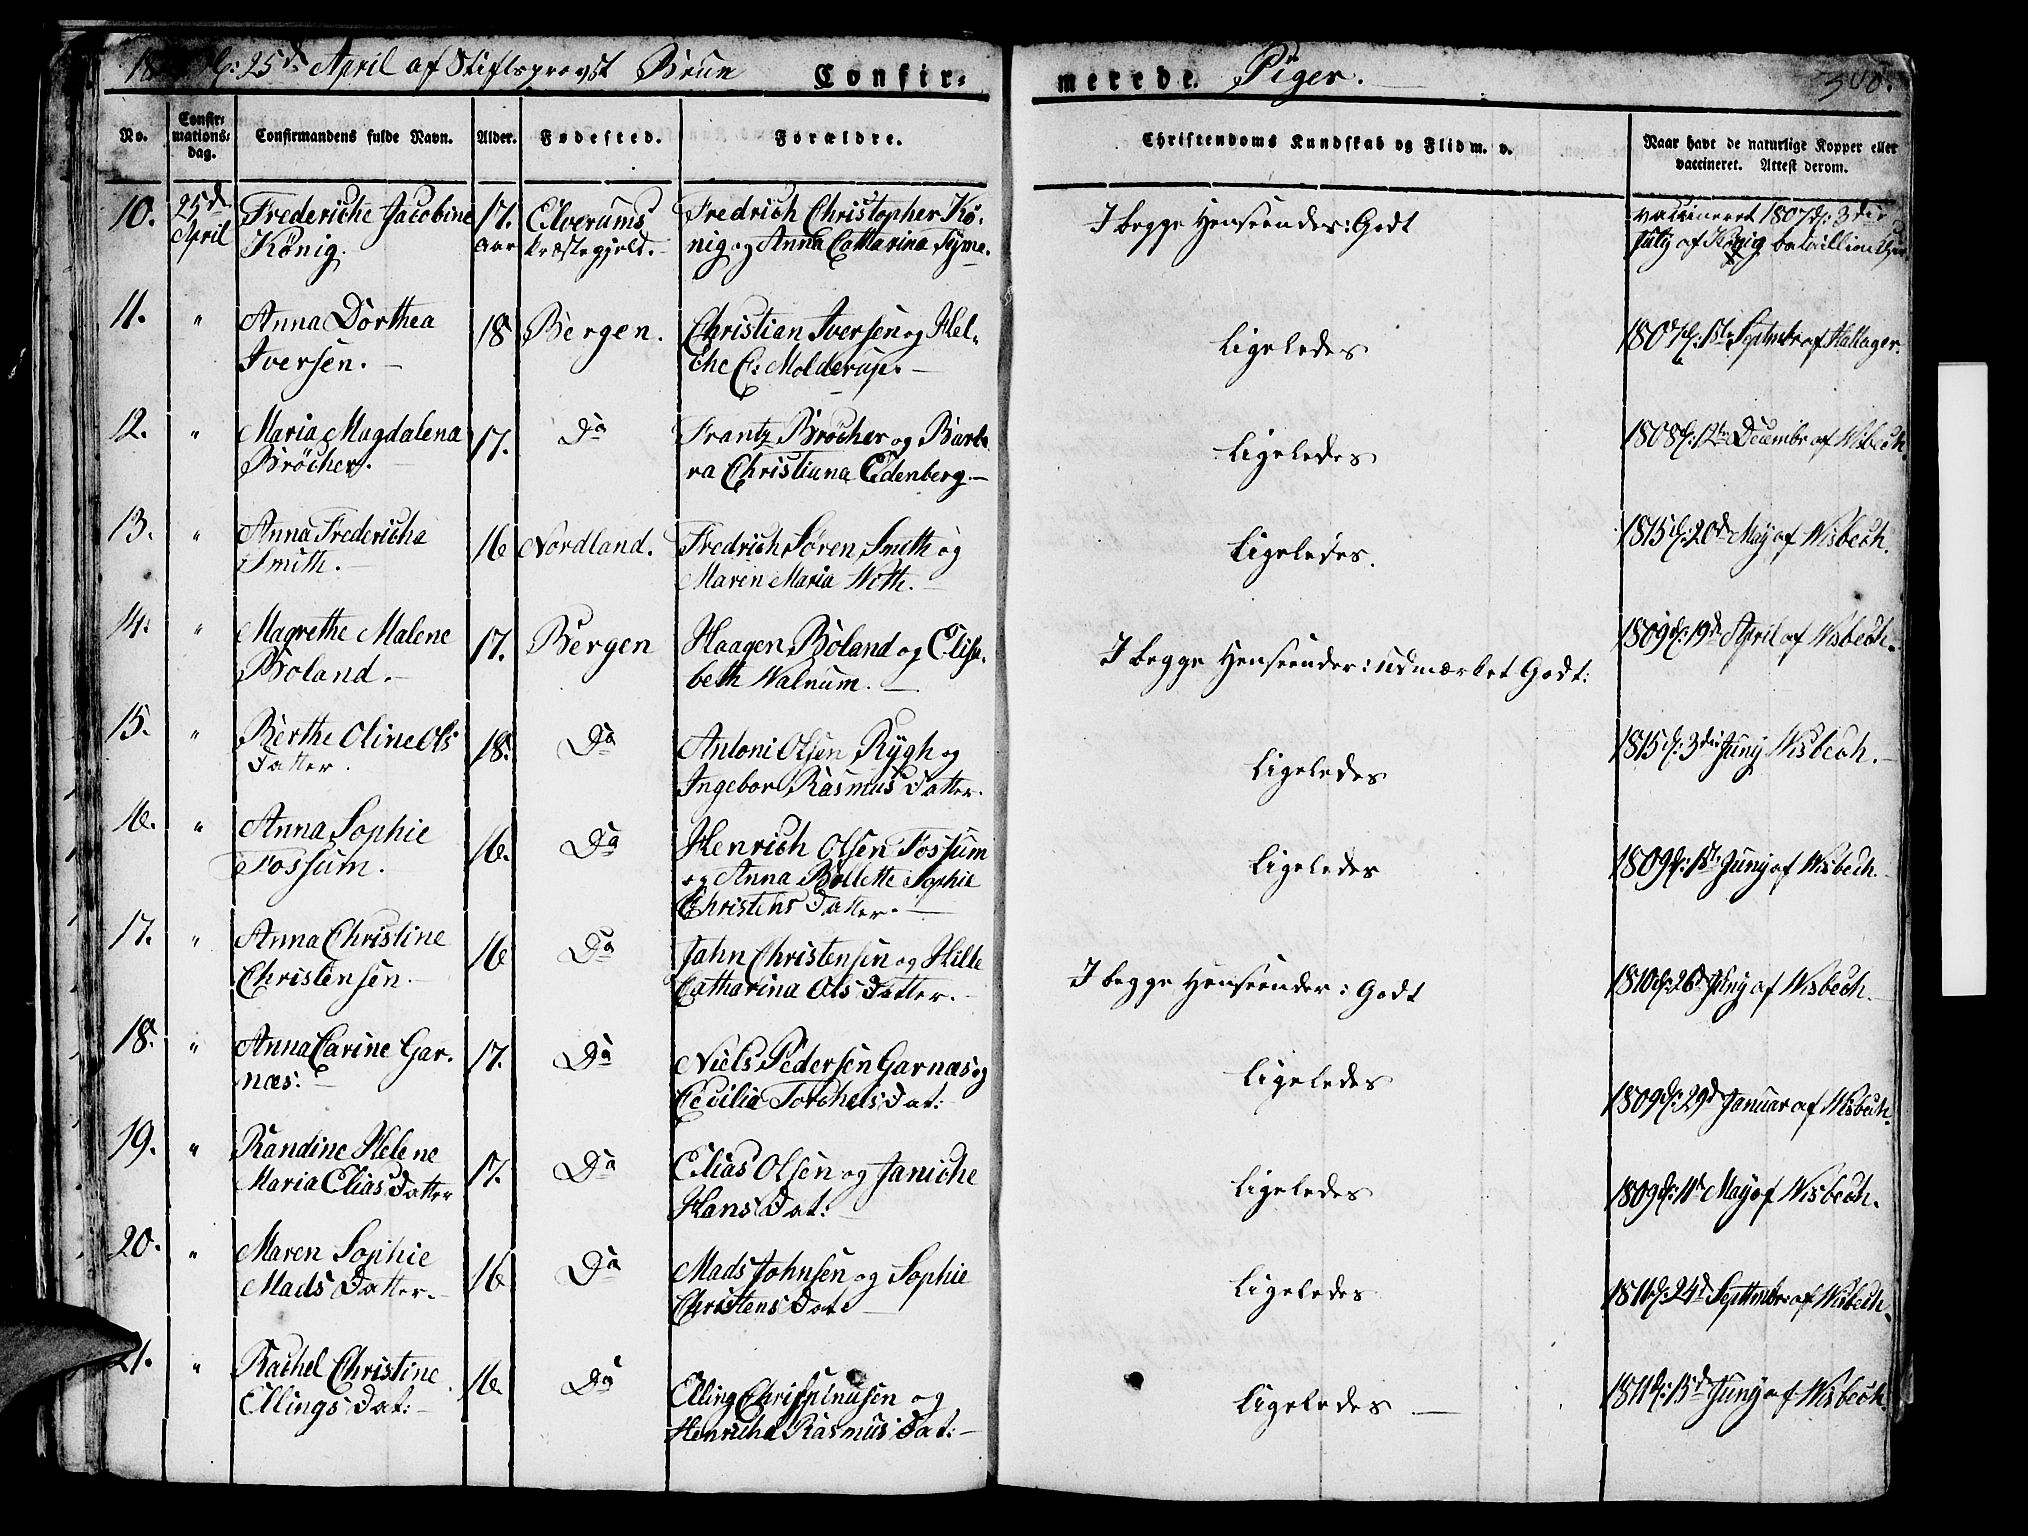 d: 25d April af Stiftsprovst Brun Confir-
merede. Piger.
No. Confir-mations-dag. Confirmandens fulde Navn. Alder. Fødested. Forældre. Christendoms Kundskab og Flid m. v. Naar havt de naturlige Kopper eller vaccineret. Attest derom.
10. 25d Frederiche Jacobine 17. Elverums Fredrich Christopher Kö- I begge Henseender: Godt vaccineret 1807 d: 3die
April König. aar Præstegjeld. nig og Anna Catharina July af König
11. " Anna Dorthea 18 Bergen. Christian Iversen og Hel- Ligeledes 1807 d: 1ste Septembr af Hallager.
Iversen. che C: Molderup.
12. " Maria Magdalena 17. Do Frantz Bröcher og Barba Ligeledes 1808 d: 12te Decembr af Wisbech.
Bröcher. ra Christiana Edenberg.
13. " Anna Fredericha 16 Nordland. Fredrich Sören Smith og Ligeledes. 1815 d: 20d May af Wisbech.
Smith. Maren Maria With.
14. " Magrethe Malene 17. Bergen Haagen Boland og Elisa- I begge Henseender: udmærket Godt: 1809 d: 19d April af Wisbech.
Boland. beth Walnum.
15. " Berthe Oline Ols 18. Do Antoni Olsen Rygh og Ligeledes 1815 d: 3die Juny Wisbech.
Datter. Ingebor Rasmus Datter.
16. " Anna Sophie 16. Do Henrich Olsen Fossum Ligeledes 1809 d: 1ste Juny af Wisbech.
Fossum. og Anna Bollette Sophie
Christens Datter.
17. " Anna Christine 16 Do Jahn Christensen og Hille I begge Henseender: Godt 1810 d: 26d Juny af Wisbech.
Christensen. Catharina Ols Datter.
18. " Anna Carine Gar- 17. Do Niels Pedersen Garnæs og Ligeledes 1809 d: 29d Januar af Wisbech.
næs. Cecilia Torchels Dat:
19. " Randine Helene 17. Do Elias Olsen og Janiche Ligeledes 1809 d: 11te May af Wisbech.
Maria Elias Datter Hans Dat:
20. " Maren Sophie 16 Do Mads Johnsen og Sophie Ligeledes 1816 d: 24d Septembr af Wisbech.
Mads Datter. Christens Dat:
21. " Rachel Christine 16. Do Elling Christensen og Ligeledes 1811 d: 15d Juny af Wisbech.
Ellings Dat: Henricha Rasmus Dat: